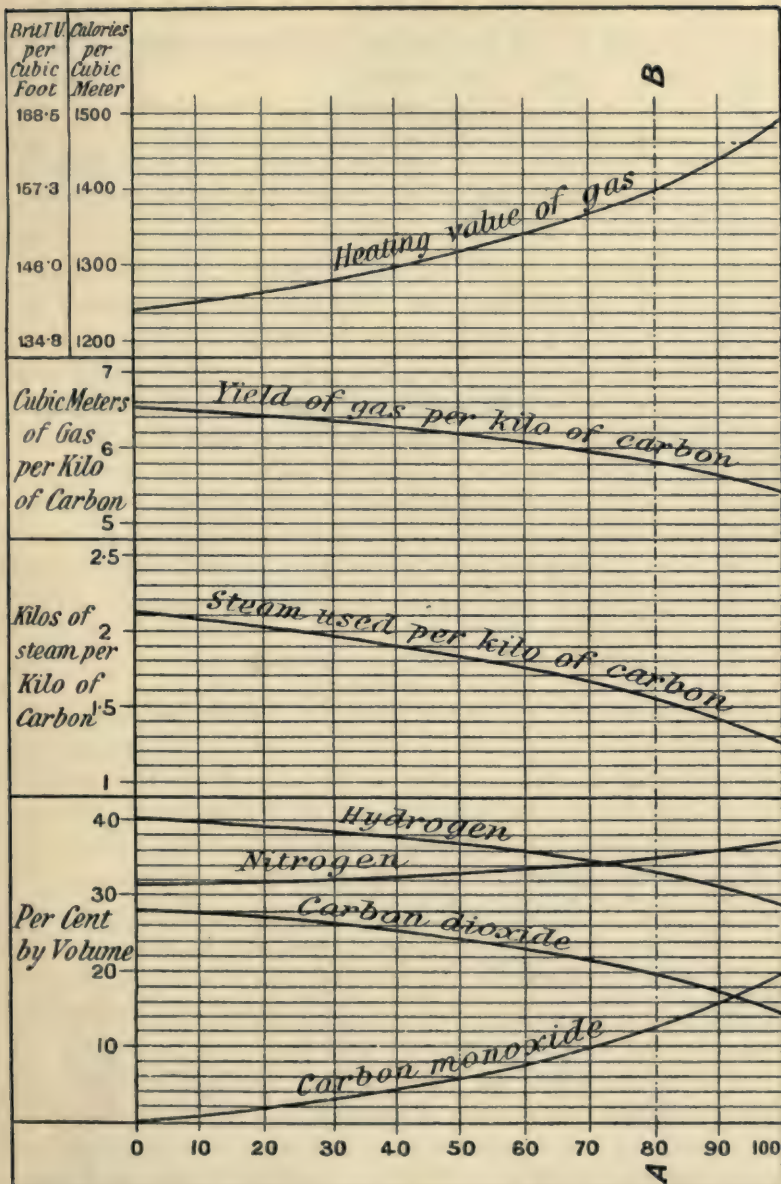 Brit.T.U.
per
Cubic
Foot
Calories
per
Cubic
Meter
B
188·5
1500
157·3
1400
146·0
1300
134·8
1200
Heating value of gas
Cubic Meters
of Gas
per Kilo
of Carbon
7
6
5
Yield of gas per kilo of carbon
Kilos of
steam per
Kilo of
Carbon
2·5
2
1·5
1
Steam used per kilo of carbon
Per Cent
by Volume
40
30
20
10
Hydrogen
Nitrogen
Carbon dioxide
Carbon monoxide
0 10 20 30 40 50 60 70 80 90 100
A